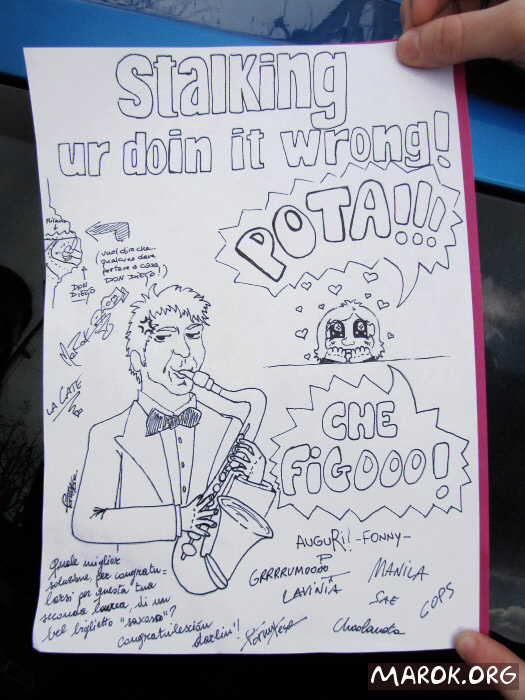 Stalking
ur doin it wrong!
POTA!!!
Milano
(vuol dire che
qualcuno deve
portare a casa
DON DIEGO!)
DON
DIEGO
LA CATE
CHE
FiGOOO!
AUGURi! -FONNY-
GRRRRUMOOOO
LAVINIA
MANILA
SAE
COPS
Quale miglior
soluzione, per congratu-
larsi per questa tua
seconda laurea, di un
bel biglietto "saxoso"?
congratulexion
darlin'!
MAROK.ORG